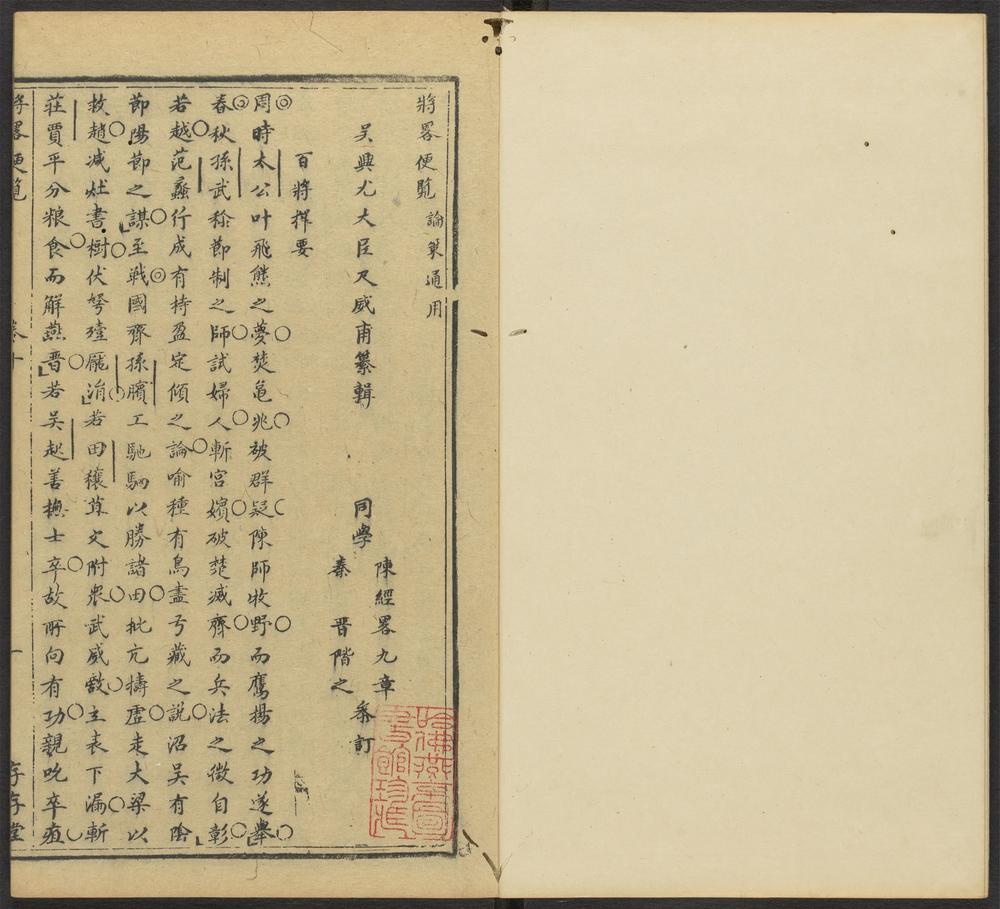 將畧便覧 論策通用
吳興尤大臣又威甫纂輯
同學
陳經畧九章
秦晋階之
叅訂
百將擇要
周時太公叶飛熊之夢焚龜兆破群疑陳師牧野而鷹揚之功遂舉
春秋孫武稔節制之師試婦人斬宮嬪破楚滅齊而兵法之徵自彰
若越范蠡行成有持盈定傾之論喻種有鳥盡弓藏之說沼吳有陰
節陽節之謀至戰國齊孫臏工馳駟以勝諸田批亢擣虛走大梁以
救趙減灶書樹伏弩殪龐涓若田穰苴文附衆武威敵立表下漏斬
莊賈平分粮食而解燕晋若吳起善撫士卒故所向有功親吮卒疽
將畧便覧
存存堂
哈佛燕京圖書館珍藏